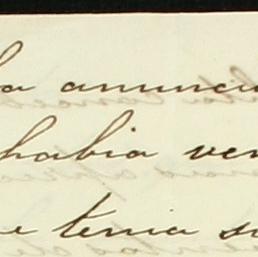 la anuncia
habia ven
e tenia su